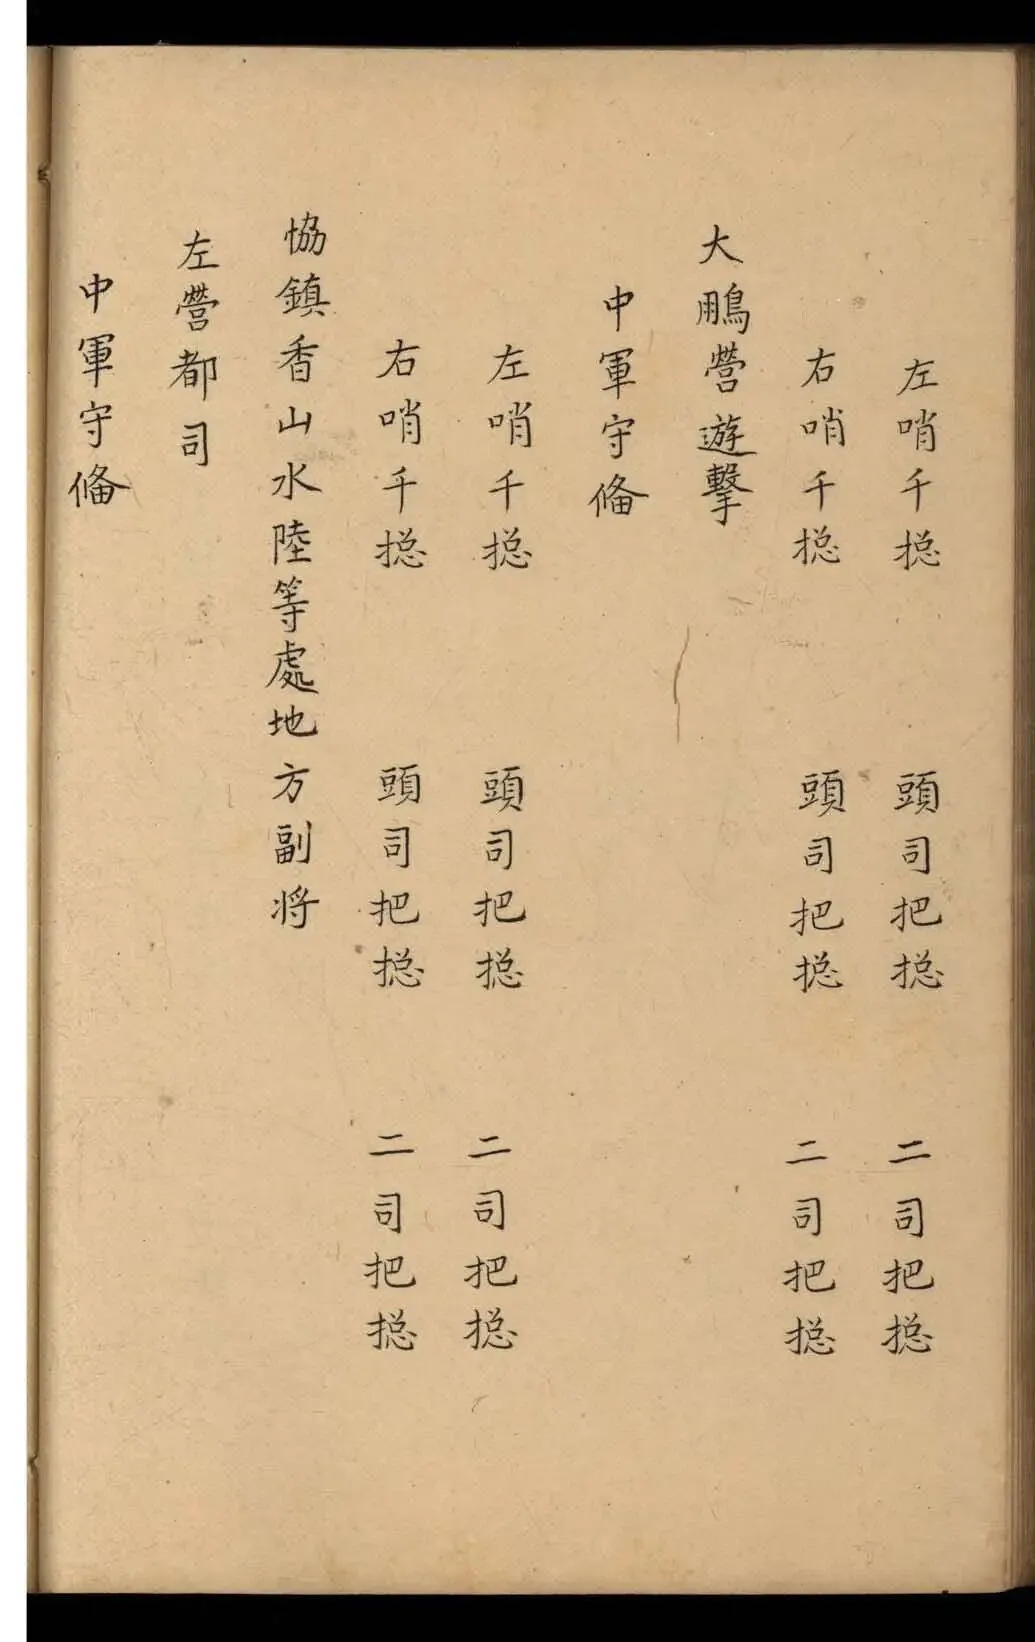 左哨千捴 頭司把捴 二司把捴
右哨千捴 頭司把捴 二司把捴
大鵬營遊擊
中軍守俻
左哨千捴 頭司把捴 二司把捴
右哨千捴 頭司把捴 二司把捴
恊鎮香山水陸等處地方副将
左營都司
中軍守俻